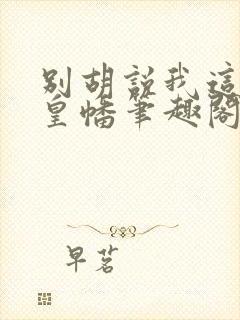 别胡说我这
皇幡笔趣阁
早茗